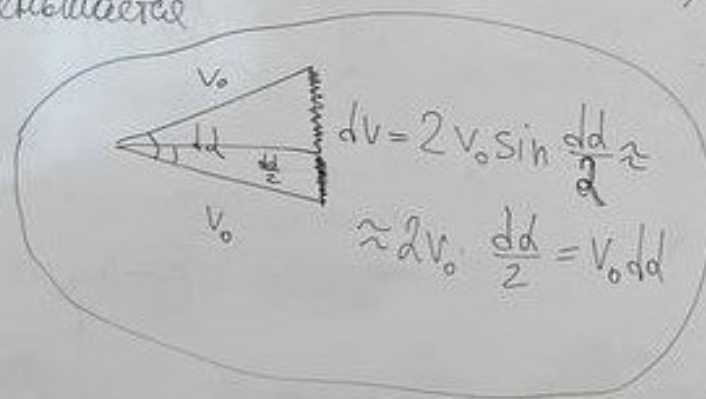 еньшается
V₀
dα
dα/2
V₀
dv = 2 v₀ sin dα/2 ≈
≈ 2v₀ · dα/2 = V₀ dα